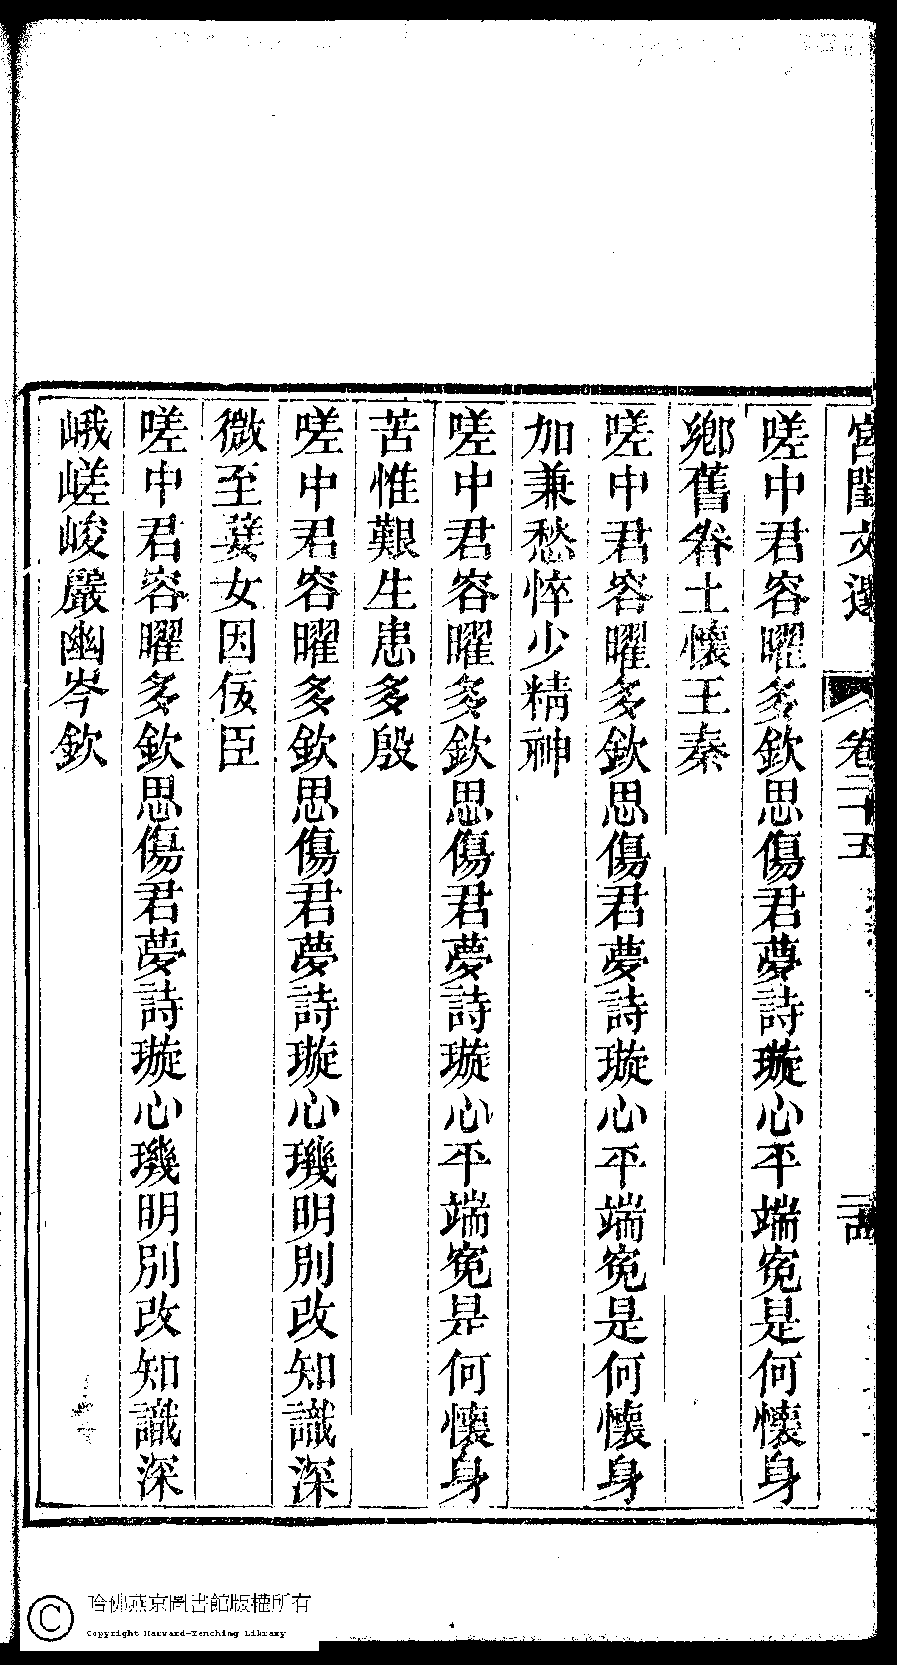 宮閨文選 卷二十五
嗟中君容曜多欽思傷君夢詩璇心平端寃是何懷身
鄉舊眷土懷王秦
嗟中君容曜多欽思傷君夢詩璇心平端寃是何懷身
加兼愁悴少精神
嗟中君容曜多欽思傷君夢詩璇心平端寃是何懷身
苦惟艱生患多殷
嗟中君容曜多欽思傷君夢詩璇心璣明別改知識深
微至嬖女因佞臣
嗟中君容曜多欽思傷君夢詩璇心璣明別改知識深
峨嵯峻嚴幽岑欽
哈佛燕京圖書館版權所有
Copyright Harvard-Yenching Library